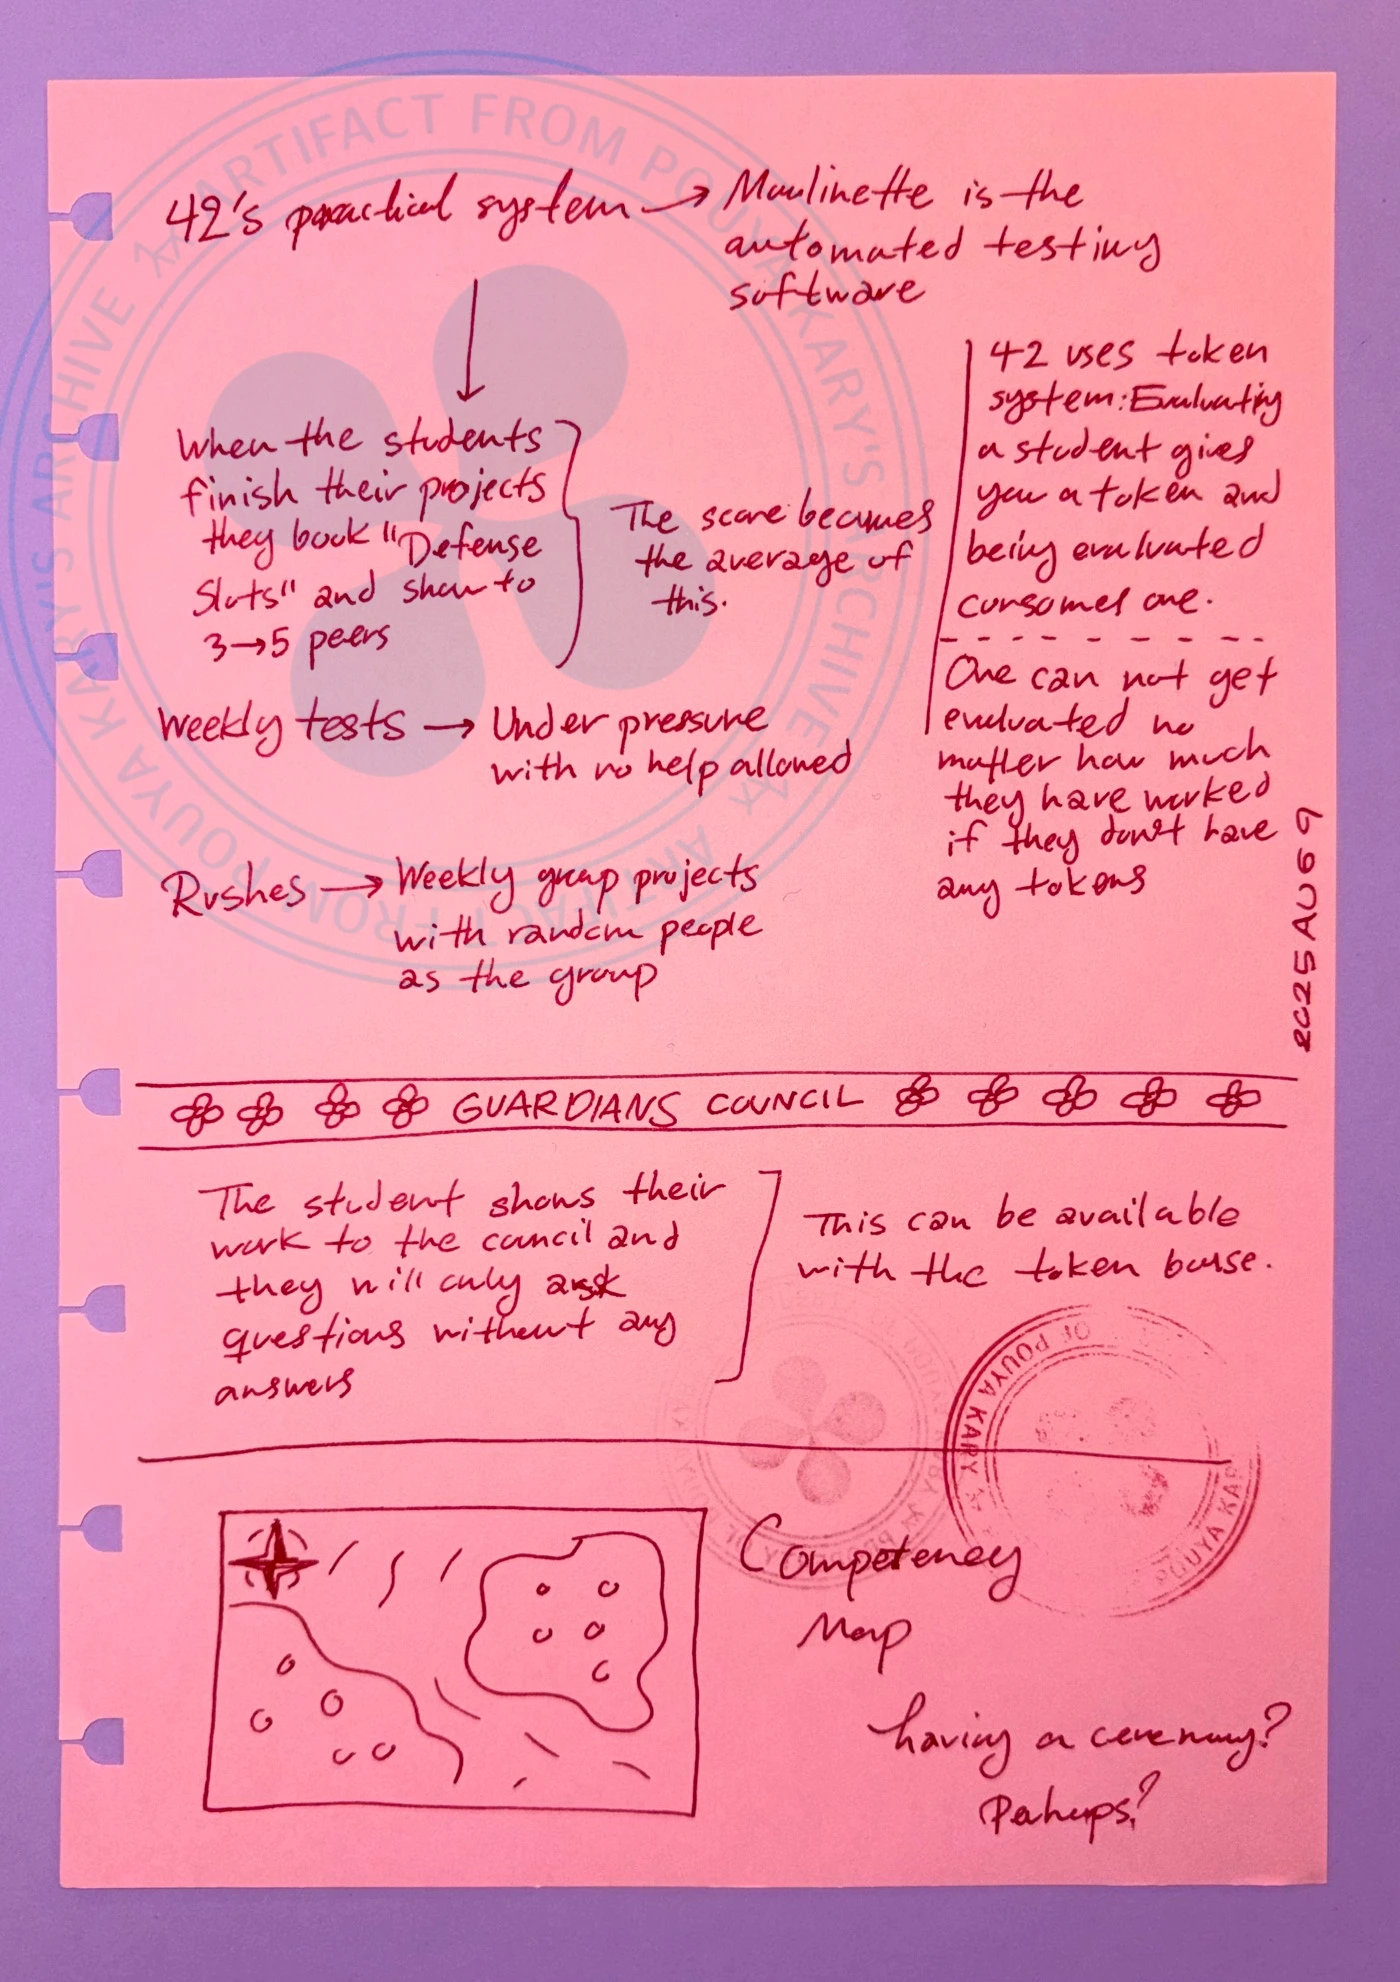 42's practical system → Moulinette is the
automated testing
software
When the students
finish their projects
they book "Defense
Slots" and show to
3→5 peers
The score becomes
the average of
this.
42 uses token
system: Evaluating
a student gives
you a token and
being evaluated
consumes one.
One can not get
evaluated no
matter how much
they have worked
if they don't have
any tokens
Weekly tests → Under pressure
with no help allowed
Rushes → Weekly group projects
with random people
as the group
2025 AUG 9
GUARDIANS COUNCIL
The student shows their
work to the council and
they will only ask
questions without any
answers
This can be available
with the token
Competency
Map
having a ceremony?
Perhaps?
ARTIFACT FROM POUYA KARY'S ARCHIVE
ARTIFACT FROM POUYA KARY'S ARCHIVE
OF POUYA KARY
POUYA KARY